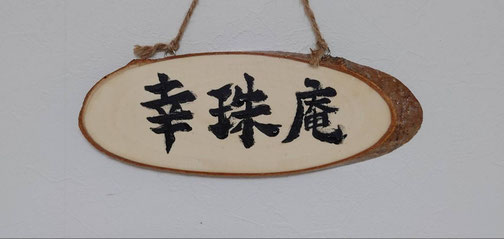 幸珠庵